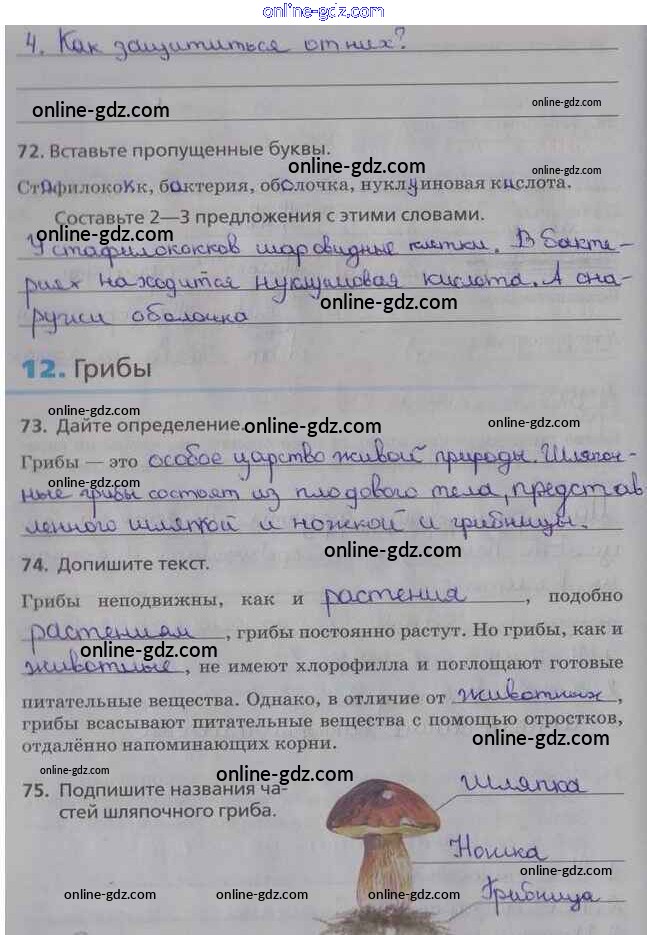 online-gdz.com
4. Как защититься от них?
online-gdz.com
online-gdz.com
72. Вставьте пропущенные буквы.
online-gdz.com
Стафилококк, бактерия, оболочка, нуклуиновая кислота.
online-gdz.com
Составьте 2—3 предложения с этими словами.
У стафилококков шаровидные клетки. В бакте-
риях находится нуклуиновая кислота. А сна-
online-gdz.com
ружи оболочка
12. Грибы
online-gdz.com
73. Дайте определение.
online-gdz.com
Грибы — это особое царство живой природы. Шляпоч-
ные грибы состоят из плодового тела, представ
ленного шляпкой и ножкой и грибницы.
online-gdz.com
74. Допишите текст.
Грибы неподвижны, как и растения, подобно
растениям, грибы постоянно растут. Но грибы, как и
online-gdz.com
животные, не имеют хлорофилла и поглощают готовые
питательные вещества. Однако, в отличие от животных,
грибы всасывают питательные вещества с помощью отростков,
online-gdz.com
отдалённо напоминающих корни.
online-gdz.com
online-gdz.com
75. Подпишите названия ча-
стей шляпочного гриба.
Шляпка
online-gdz.com
Ножка
online-gdz.com
Грибница
online-gdz.com
online-gdz.com
online-gdz.com